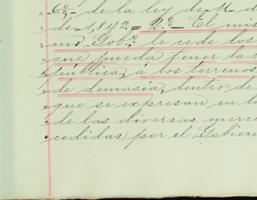 6º de la ley de 11 d
de 1,142= 9º- El mis
mo Gobº le cede los
que pueda tener la
pública, á los terrenos
de demasía, dentro de
que se expresan en la
de las diversas merce
cedidas por el Gobier